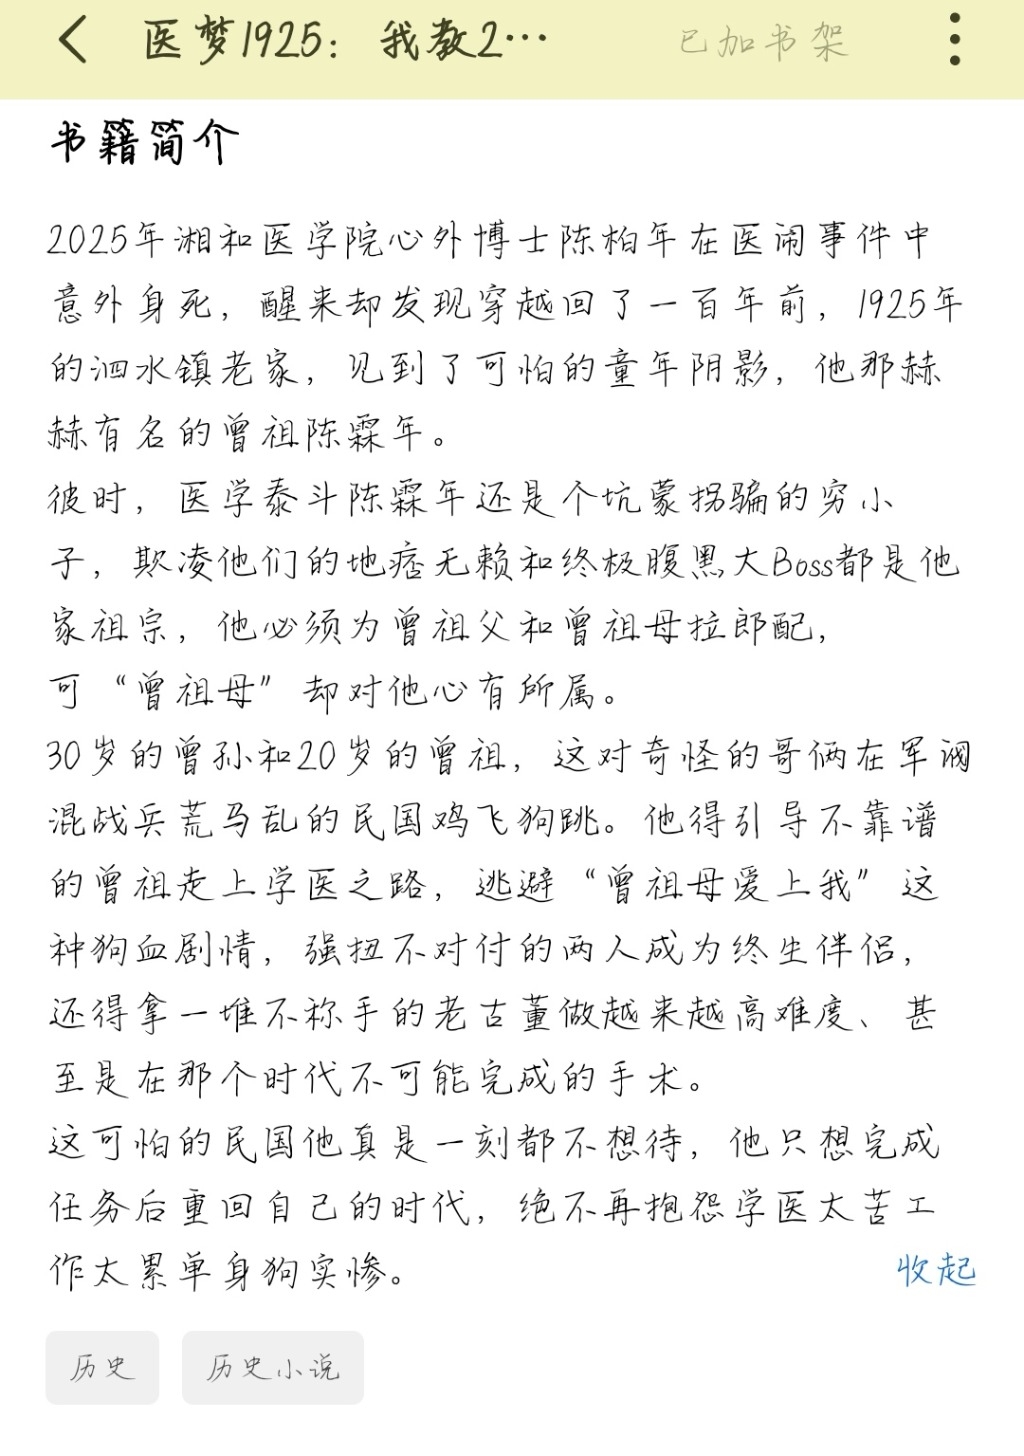 医梦1925：我教2… 已加书架
书籍简介
2025年湘和医学院心外博士陈柏年在医闹事件中
意外身死，醒来却发现穿越回了一百年前，1925年
的泗水镇老家，见到了可怕的童年阴影，他那赫
赫有名的曾祖陈霖年。
彼时，医学泰斗陈霖年还是个坑蒙拐骗的穷小
子，欺凌他们的地痞无赖和终极腹黑大Boss都是他
家祖宗，他必须为曾祖父和曾祖母拉郎配，
可“曾祖母”却对他心有所属。
30岁的曾孙和20岁的曾祖，这对奇怪的哥俩在军阀
混战兵荒马乱的民国鸡飞狗跳。他得引导不靠谱
的曾祖走上学医之路，逃避“曾祖母爱上我”这
种狗血剧情，强扭不对付的两人成为终生伴侣，
还得拿一堆不称手的老古董做越来越高难度、甚
至是在那个时代不可能完成的手术。
这可怕的民国他真是一刻都不想待，他只想完成
任务后重回自己的时代，绝不再抱怨学医太苦工
作太累单身狗实惨。 收起
历史 历史小说